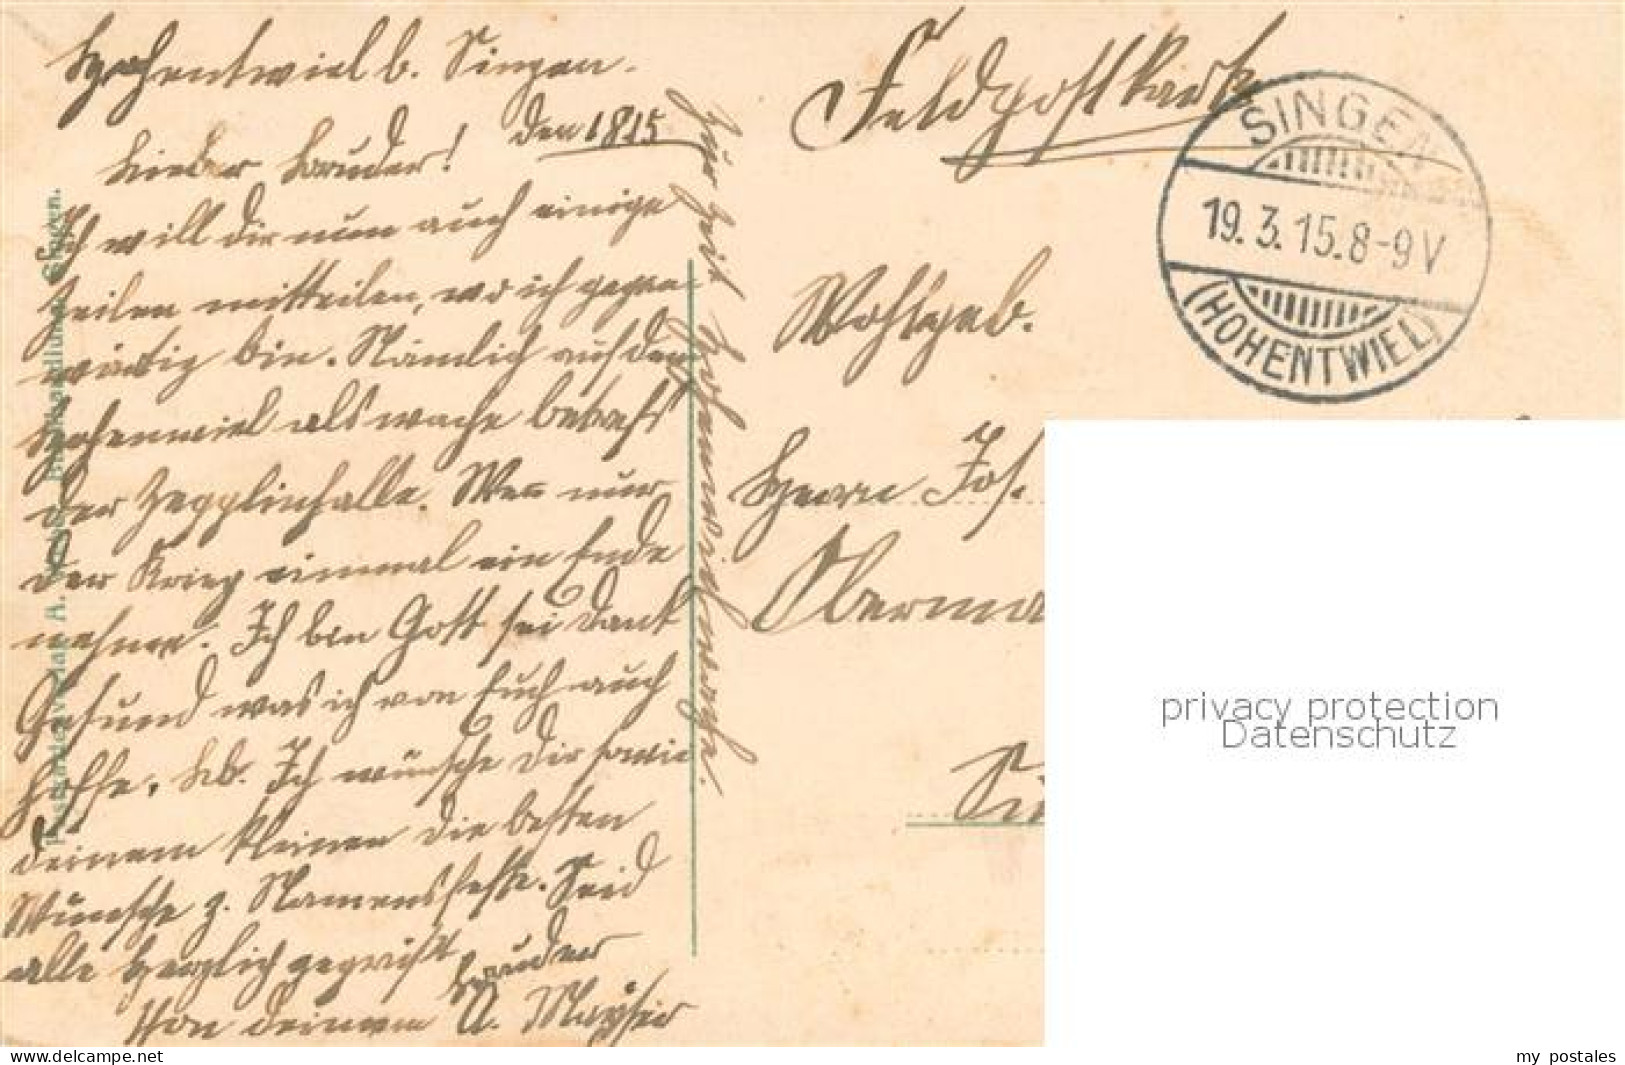 Hohentwiel b. Singen.
den 1815
Lieber Bruder!
Ich will dir nun auch einige
Zeilen mitteilen, wo ich gegen-
wärtig bin. Nämlich auf dem
Hohenwiel als wache betrefs
der Zepplinhalle. Wen nur
der Krieg einmal ein Ende
nehme. Ich bin Gott sei Dank
Gesund was ich von Euch auch
hoffe. Lb. Ich wünsche Dir sowie
deinem kleinen die besten
Wünsche z. Namensfeste. Seid
alle herzlich gegrüßt
Von deinem Bruder
A. Mayser
Zur Zeit Hohenwielwache.
Feldpostkarte
SINGEN
19.3.15.8-9V
(HOHENTWIEL)
Wohlgeb.
Herrn Jos.
Oberma
Si
privacy protection
Datenschutz
www.delcampe.net
my_postales